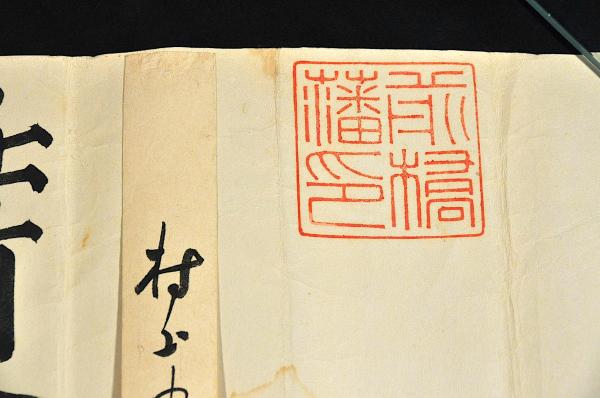 前橋
藩印
村上